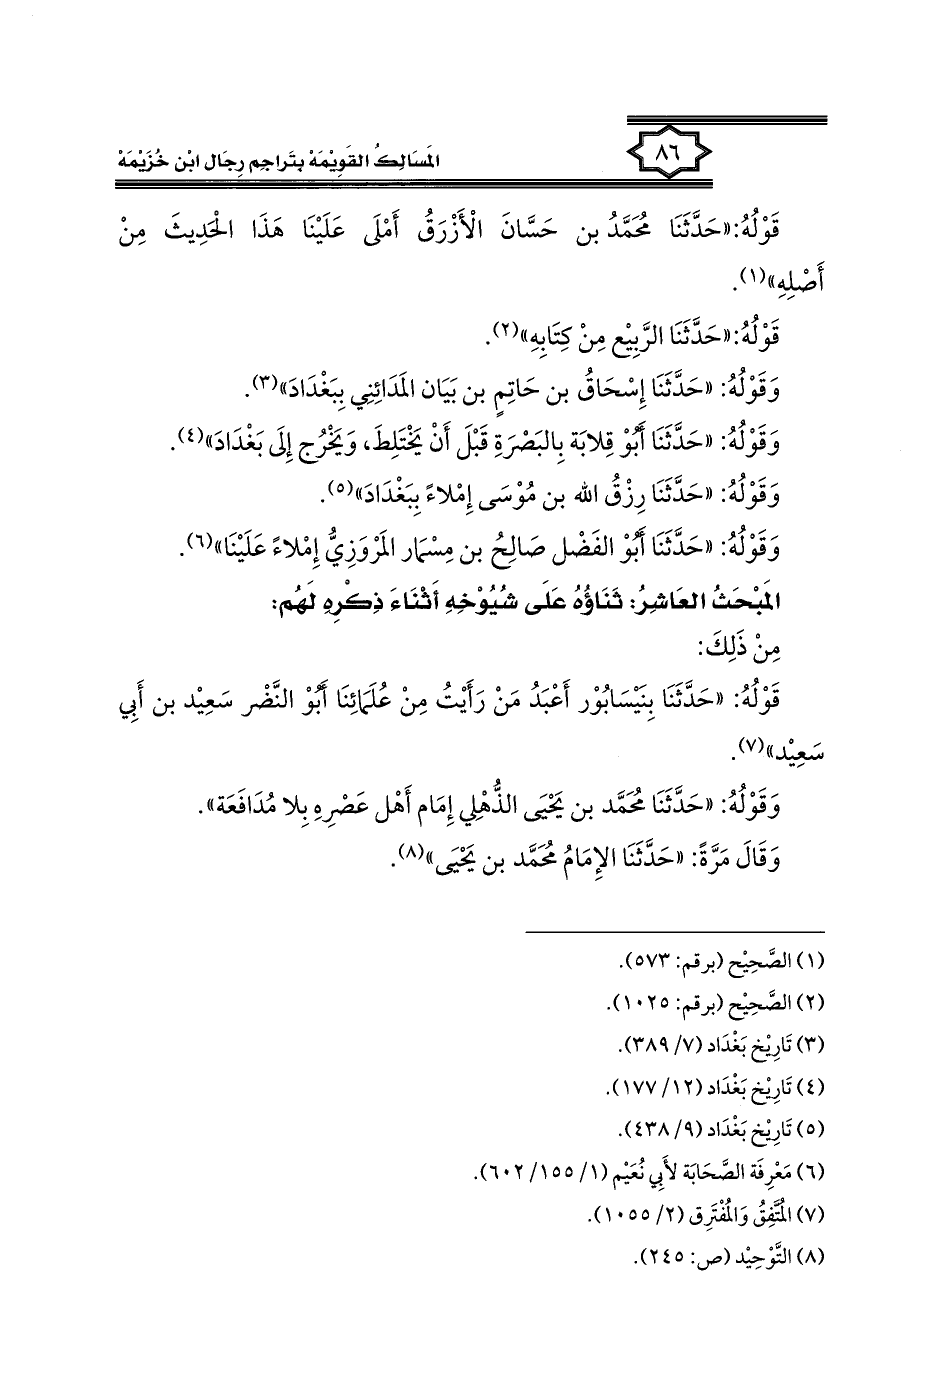 ٨٦
المَسَالِكُ القَوِيْمَة بِتَراجِم رِجَال ابْن خُزَيْمَة
قَوْلُهُ:«حَدَّثَنَا مُحَمَّدُ بن حَسَّانَ الْأَزْرَقُ أَمْلَى عَلَيْنَا هَذَا الْحَدِيثَ مِنْ
أَصْلِهِ»(١).
قَوْلُهُ:«حَدَّثَنَا الرَّبِيْع مِنْ كِتَابِهِ»(٢).
وَقَوْلُهُ: «حَدَّثَنَا إِسْحَاقُ بن حَاتِمٍ بن بَيَان المَدَائِنِي بِبَغْدَادَ»(٣).
وَقَوْلُهُ: «حَدَّثَنَا أَبُوْ قِلابَة بِالبَصْرَةِ قَبْلَ أَنْ يَخْتَلِطَ، وَيَخْرُج إِلَى بَغْدَادَ»(٤).
وَقَوْلُهُ: «حَدَّثَنَا رِزْقُ الله بن مُوْسَى إِمْلاءً بِبَغْدَادَ»(٥).
وَقَوْلُهُ: «حَدَّثَنَا أَبُوْ الفَضْل صَالِحُ بن مِسْمَار المَرْوَزِيُّ إِمْلاءً عَلَيْنَا»(٦).
المَبْحَثُ العَاشِرُ: ثَنَاؤُهُ عَلَى شُيُوْخِهِ أَثْنَاءَ ذِكْرِهِ لَهُم:
مِنْ ذَلِكَ:
قَوْلُهُ: «حَدَّثَنَا بِنَيْسَابُوْر أَعْبَدُ مَنْ رَأَيْتُ مِنْ عُلَمَائِنَا أَبُوْ النَّضْر سَعِيْد بن أَبِي
سَعِيْد»(٧).
وَقَوْلُهُ: «حَدَّثَنَا مُحَمَّد بن يَحْيَى الذُّهْلِي إِمَام أَهْل عَصْرِهِ بِلا مُدَافَعَة».
وَقَالَ مَرَّةً: «حَدَّثَنَا الإِمَامُ مُحَمَّد بن يَحْيَى»(٨).
(١) الصَّحِيْح (برقم: ٥٧٣).
(٢) الصَّحِيْح (برقم: ١٠٢٥).
(٣) تَارِيْخ بَغْدَاد (٧/ ٣٨٩).
(٤) تَارِيْخ بَغْدَاد (١٢/ ١٧٧).
(٥) تَارِيْخ بَغْدَاد (٩/ ٤٣٨).
(٦) مَعْرِفَة الصَّحَابَة لأَبِي نُعَيْم (١/ ١٥٥/ ٦٠٢).
(٧) المُتَّفِقُ وَالمُفْتَرِق (٢/ ١٠٥٥).
(٨) التَّوْحِيْد (ص: ٢٤٥).